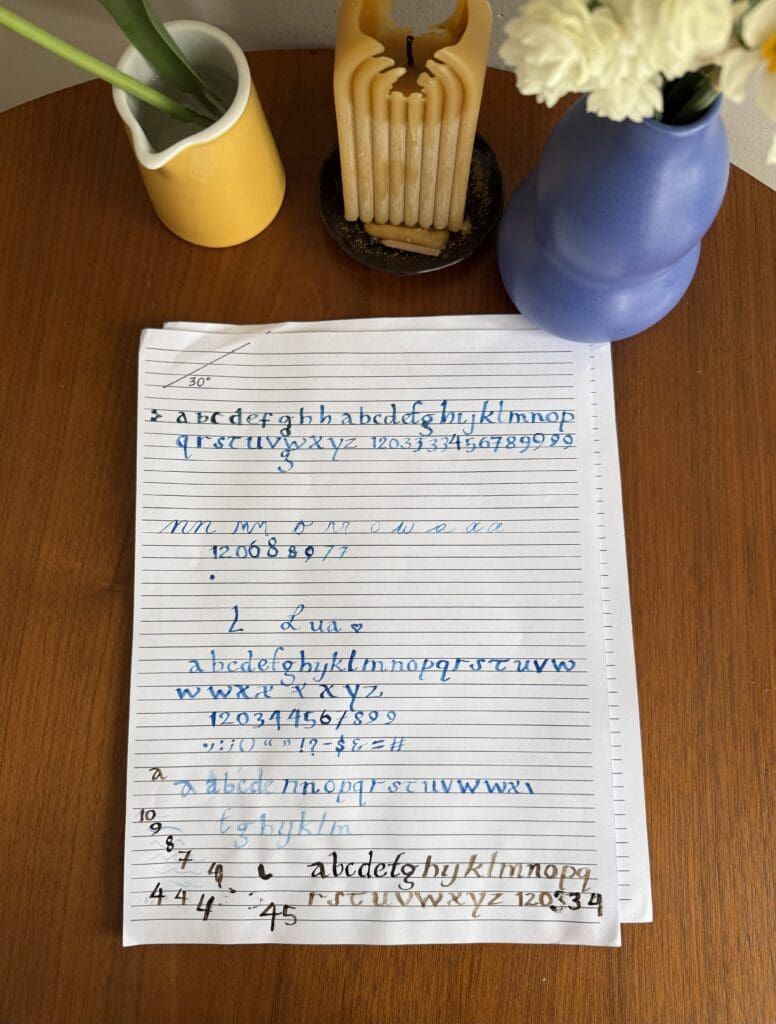 30°
a b c d e f g h h a b c d e f g h i j k l m n o p
q r s t u v w x y z 1 2 0 3 3 3 3 4 5 6 7 8 9 9 9 9
g
n n m n o r r o w a a a
1 2 0 6 8 8 9 7 7
L Lua
a b c d e f g h i j k l m n o p q r s t u v w
w w x x x x y z
1 2 0 3 4 4 5 6 / 8 9 9
. , : ; ( ) “ ” ! ? - $ & = #
a
a a b c d e n n o p q r s t u v w w x
f g h i j k l m
10
9
8
7 4 a b c d e f g h i j k l m n o p q
4 4 4 45 r s t u v w x y z 1 2 0 3 3 4